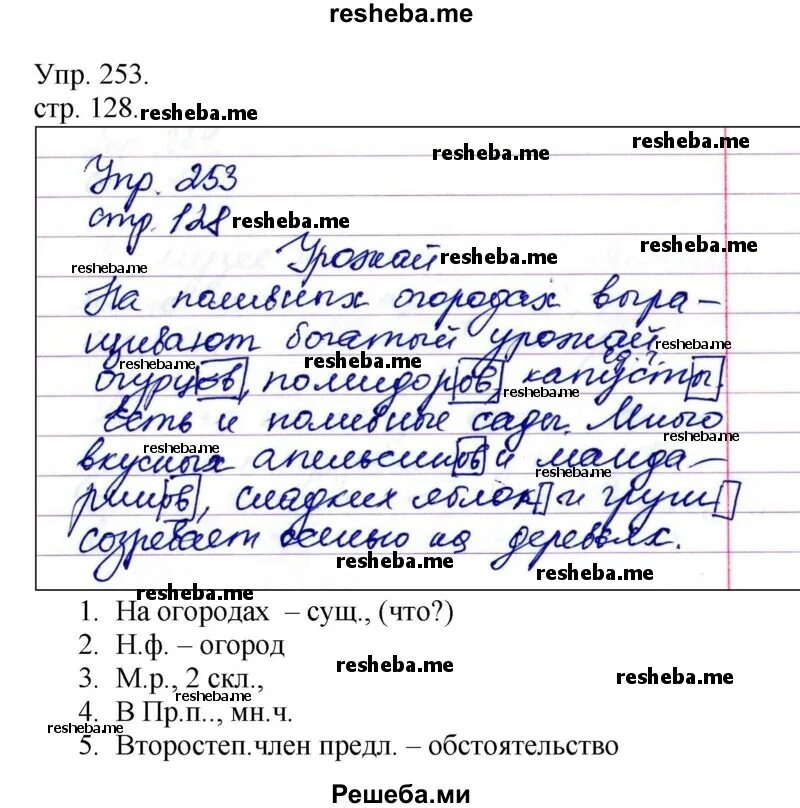 resheba.me
Упр. 253.
стр. 128. resheba.me
resheba.me
Упр. 253
стр. 128 resheba.me
resheba.me Урожай resheba.me resheba.me
На поливных огородах выра-
щивают богатый урожай resheba.me
resheba.me resheba.me ед.ч.
огурцов, помидоров, resheba.me капусты.
Есть и поливные сады. Много
resheba.me resheba.me
вкусных апельсинов и манда- resheba.me
ринов, сладких яблок и груш
созревает осенью на деревьях.
resheba.me resheba.me
resheba.me
1. На огородах – сущ., (что?)
2. Н.ф. – огород
3. М.р., 2 скл., resheba.me resheba.me
resheba.me
4. В Пр.п.., мн.ч.
resheba.me
5. Второстеп.член предл. – обстоятельство
Решеба.ми